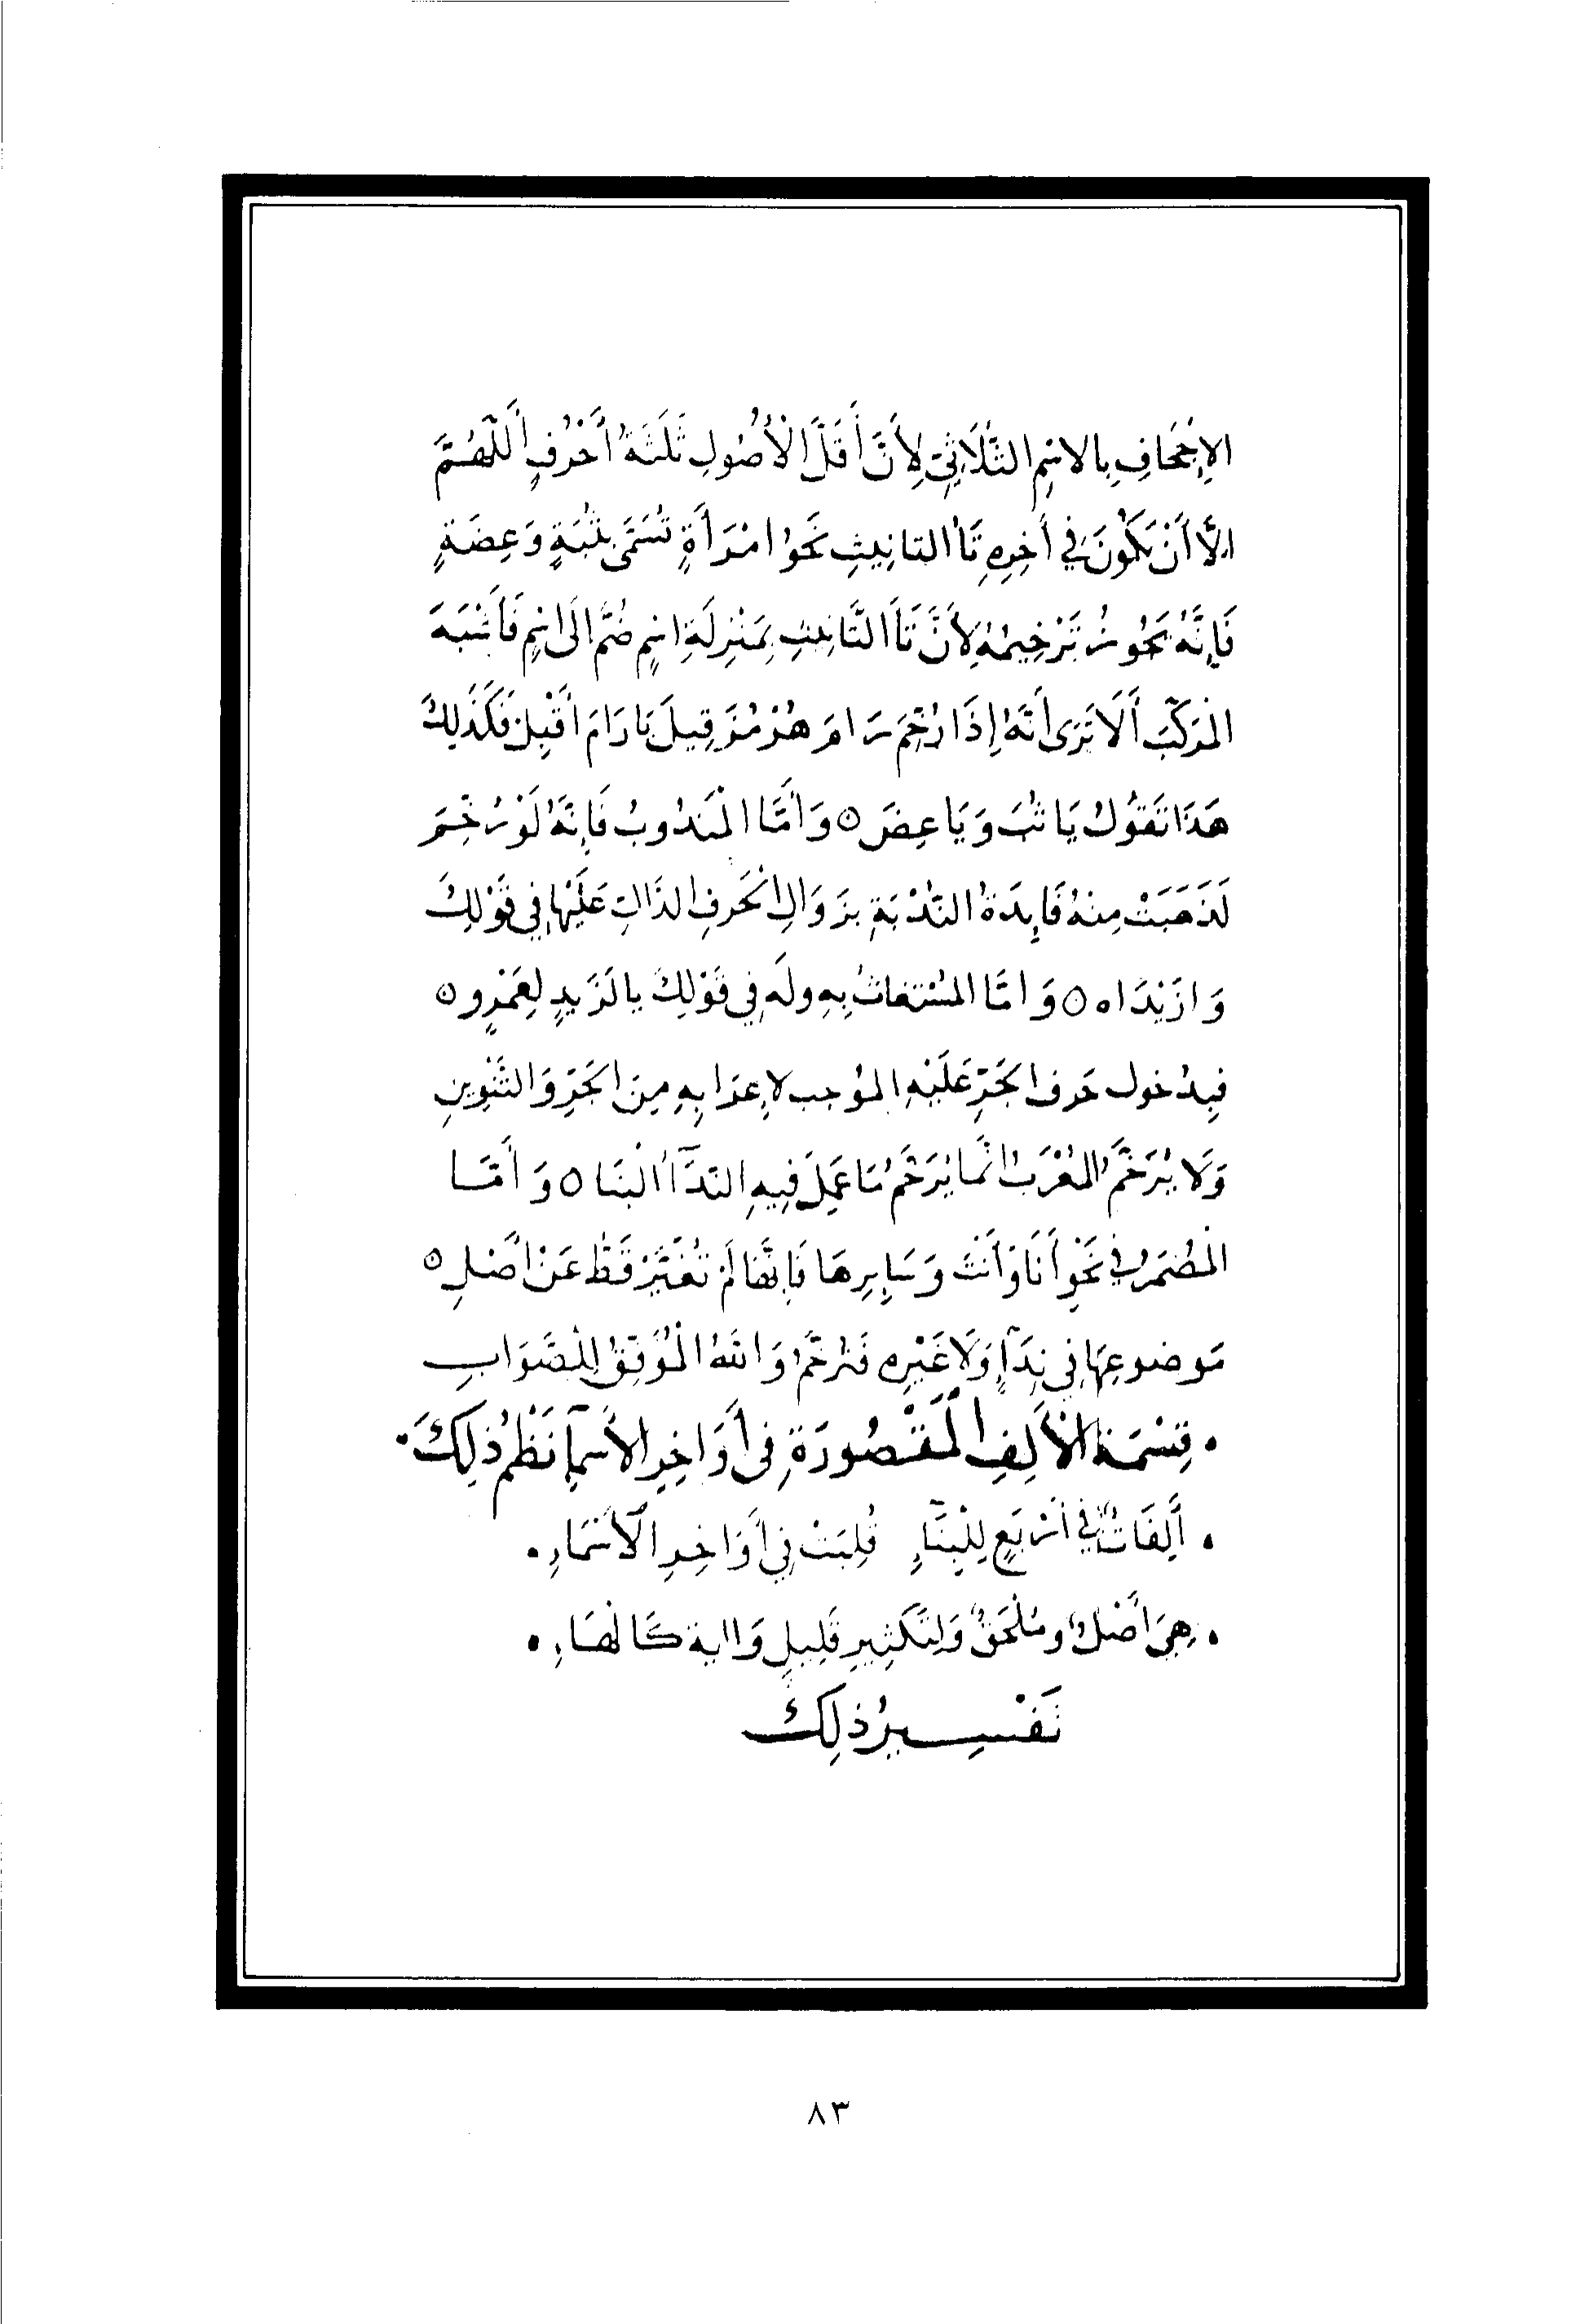 الإِجْحَافِ بِالاسْمِ الثُّلَاثِيِّ لِأَنَّ أَقَلَّ الْأُصُولِ ثَلَثَةُ أَحْرُفٍ أَللَّهُمَّ
إلَّا أَنْ يَكُونَ فِي أَخِرِهِ تَاُ التانِيثِ نَحْوُ امْرَأَةٍ تُسَمَّى بِثُبَةٍ وَعِضَةٍ
فَإِنَّهُ يَجُوزُ تَرْخِيمُهُ لِأَنَّ تَاَ التَّانِيثِ بِمَنْزِلَةِ اسْمٍ ضُمَّ إلَى اسْمٍ فَأَشْبَهَ
الْمُرَكَّبَ أَلَا تَرَى أَنَّهُ إِذَا رُخِّمَ رَامَ هُرْمُزَ قِيلَ يَا رَامَ أَقْبِلْ فَكَذَلِكَ
هَذَا تَقُولُ يَا ثُبَ وَيَا عِضَ ٥ وَأَمَّا الْمَنْدُوبُ فَإِنَّهُ لَوْ رُخِّمَ
لَذَهَبَتْ مِنْهُ فَايِدَةُ النُّدْبَةِ بِزَوَالِ الْحَرْفِ الدَّالِّ عَلَيْهَا فِي قَوْلِكَ
وَازَيْدَاه ٥ وَامَّا المُسْتَغاثُ بِهِ ولَه فِي قَوْلِكَ يا لَزَيدٍ لِعَمْرٍو ٥
فبِدُخول حَرف الجَرِّ عَلَيْهِ المُوجب لإِعرَابِهِ مِنَ الجَرِّ وَالتَّنْوِينِ
وَلَا يُرَخَّمُ المُعْرَبُ انَّمَا يُرَخَّمُ مَا عَمِلَ فِيهِ النِّدَآُ الْبِنَا ٥ وَأَمَّا
الْمُضْمَرُ فِي نَحْوِ أَنَا وَأَنْتَ وَسَايِرِهَا فَإِنَّهَا لَمْ تُغَيَّرْ قَطُّ عَنْ أَصْلِ ٥
مَوضوعِهَا فِي نِدَآءٍ وَلَا غَيْرِهِ فَتُرَخَّمُ وَاللهُ الْمُوَفِّقُ لِلصَّوَابِ
• قِسْمَةُ الأَلِفِ الْمَقْصُورَةِ فِى أَوَاخِرِ الأَسْمآءِ نَظْمُ ذلِكَ •
• أَلِفَاتٌ فِي أَرْبَعٍ لِلْبِنَآءِ قُلِبَتْ فِي أَوَاخِرِ الْأَسْمَاءِ •
• هِيَ أَصْلٌ ومُلْحَقٌ وَلِتَكْثِيرِ قَلِيلٍ وَاية كَالْهَاءِ •
تَفْسِيرُ ذلِكَ
٨٣